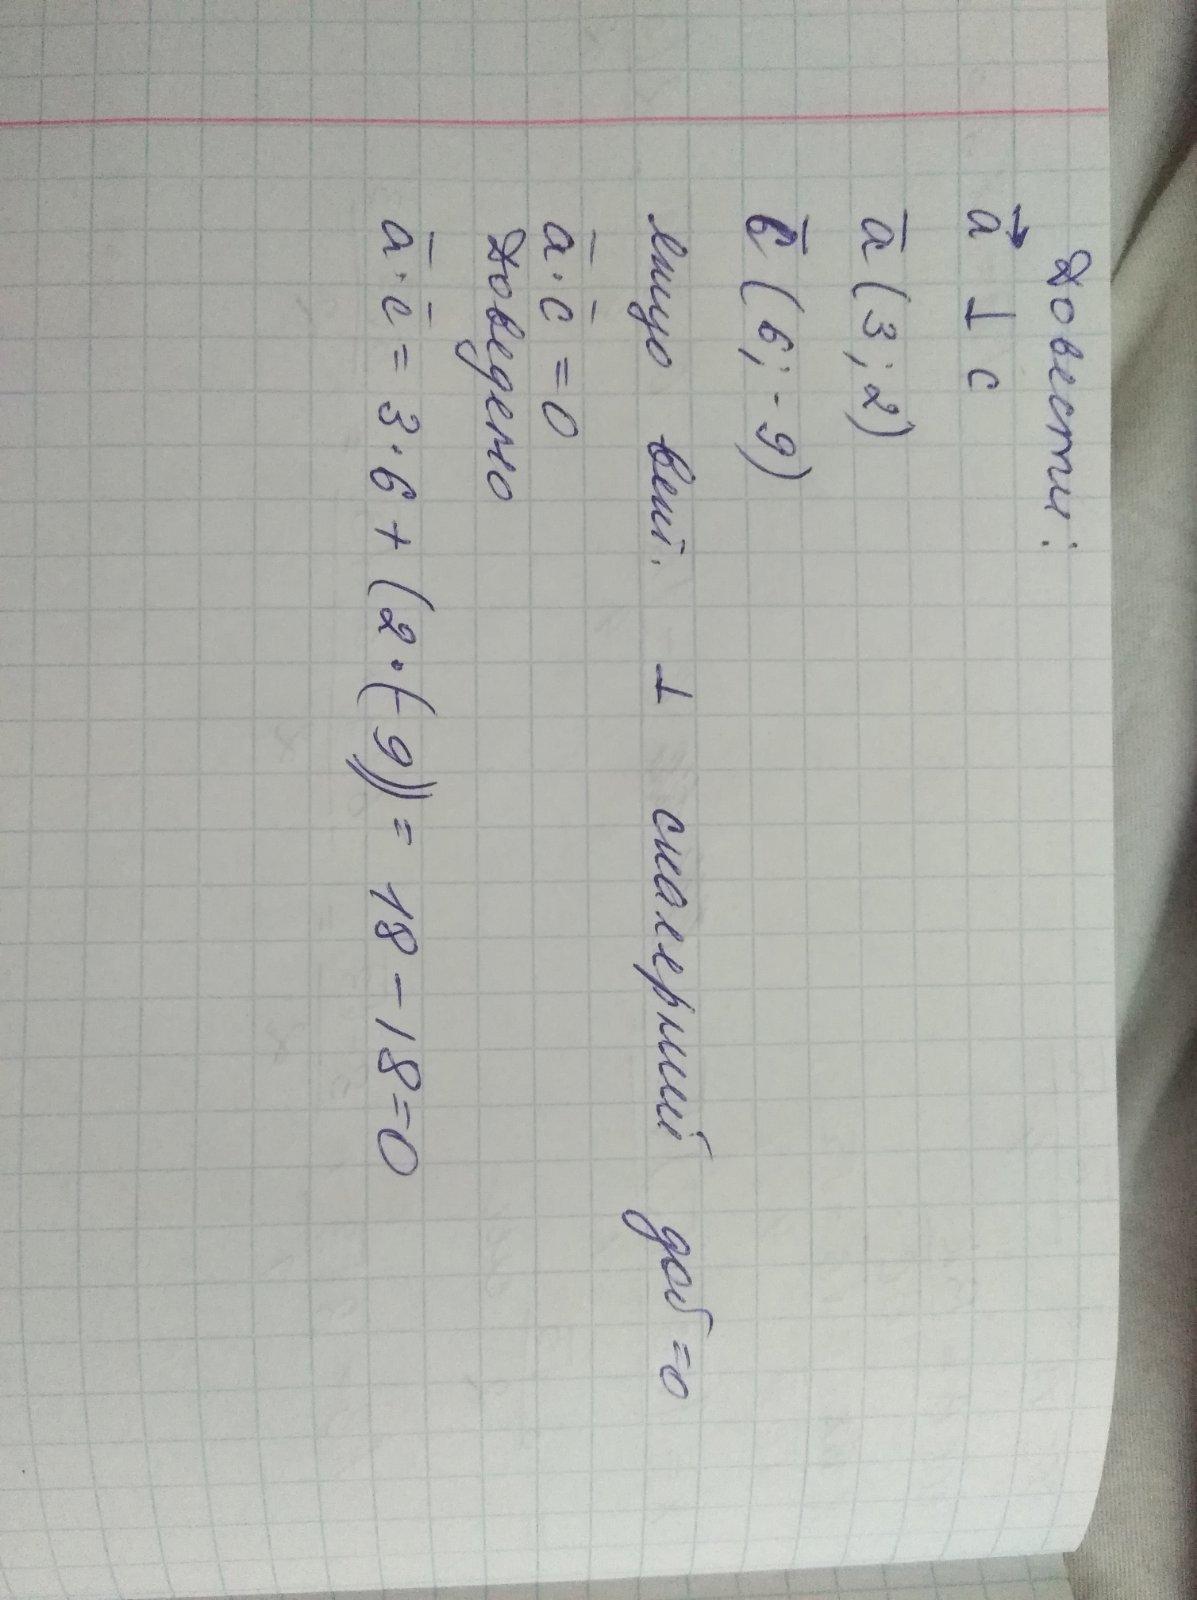 Довести:
a⃗ ⊥ c
a̅ (3; 2)
c̅ (6; -9)
Якщо век. ⊥ скалерний доб = 0
a̅ · c̅ = 0
Доведено
a̅ · c̅ = 3·6 + (2·(-9)) = 18 - 18 = 0